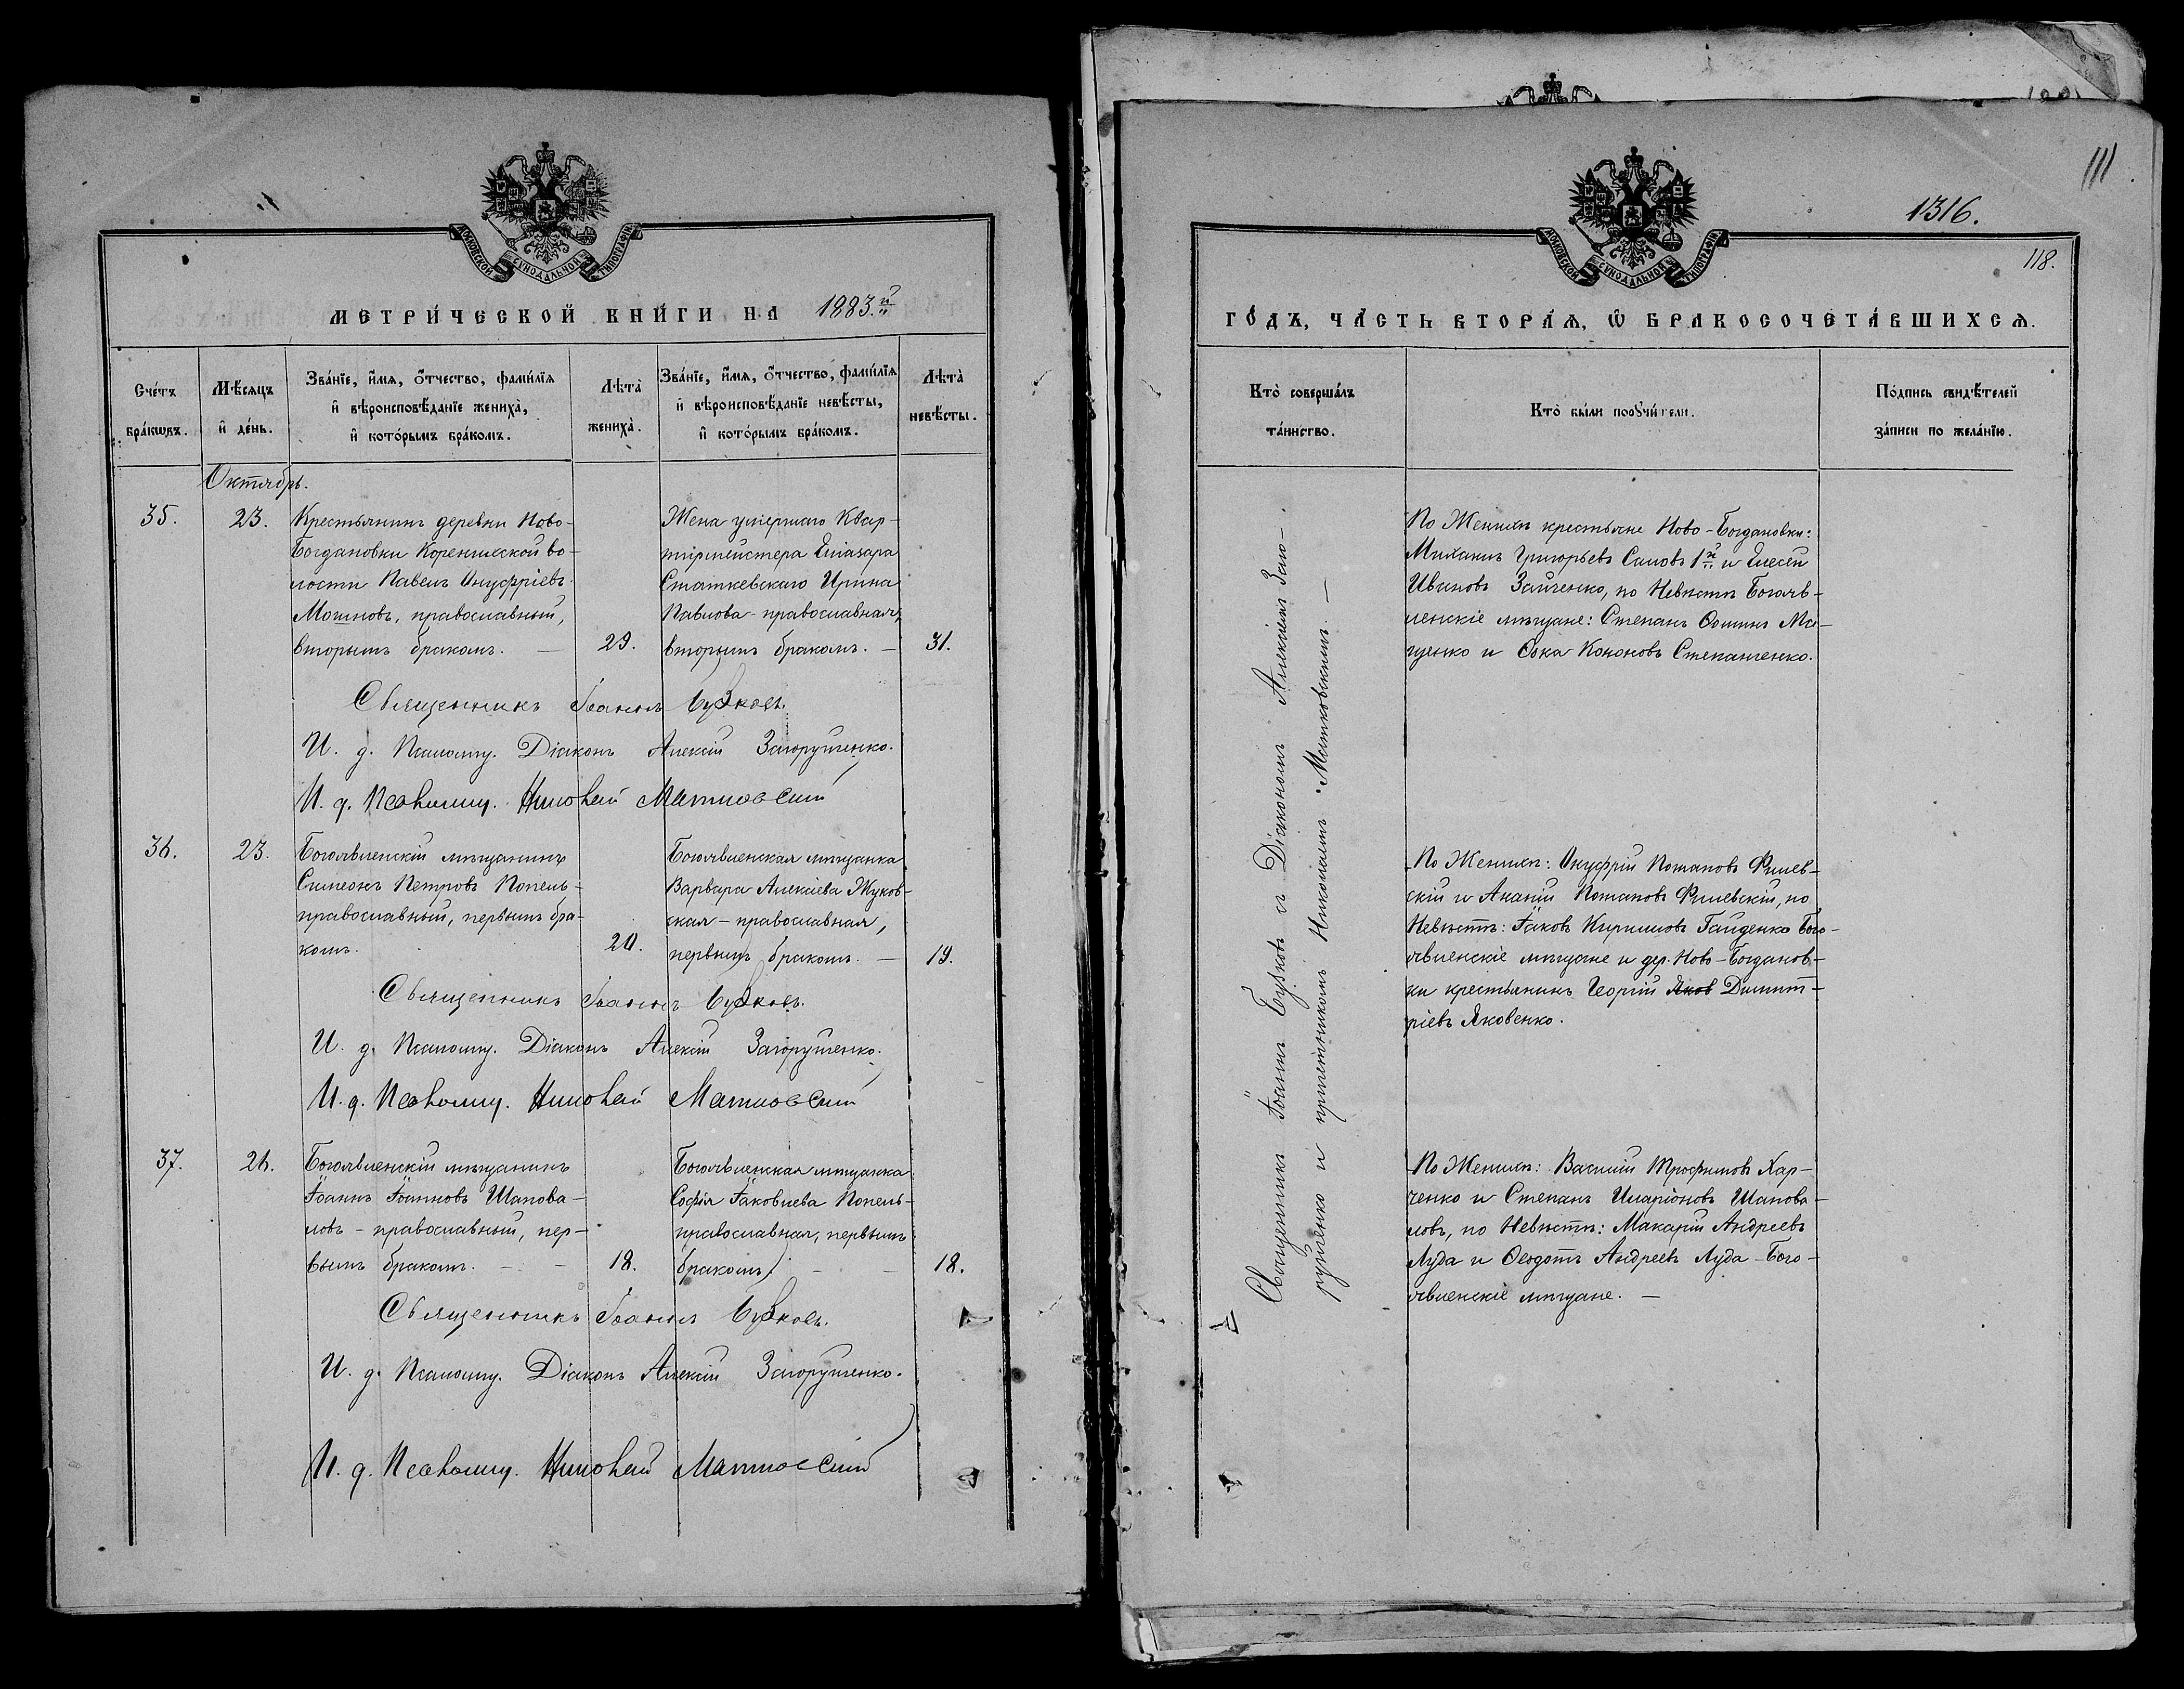 МОСКОВСКОЙ СѴНОДАЛЬНОЙ ТИПОГРАФІИ
МЕТРИ́ЧЕСКОЙ КНИ́ГИ НА 1883.й
Сче́тъ бра́кѡвъ.
Мѣ́сяцъ и҆ де́нь.
Зва́нїе, и҆́мѧ, ѻ҆́тчество, фами́лїѧ
и҆ вѣроисповѣ́данїе жениха̀,
и҆ кото́рымъ бра́комъ.
Лѣта̀ жениха̀.
Зва́нїе, и҆́мѧ, ѻ҆́тчество, фами́лїѧ
и҆ вѣроисповѣ́данїе невѣ́сты,
и҆ кото́рымъ бра́комъ.
Лѣта̀ невѣ́сты.
Октябрь.
35.
23.
Крестьянинъ деревни Ново-
Богдановки Корениской во-
лости Павелъ Онуфріевъ
Мошновъ, православный,
вторымъ бракомъ. —
29.
Жена умершаго Квар-
тирмейстера Еліазара
Статкевскаго Ирина
Павлова - православная,
вторымъ бракомъ. —
31.
Священникъ Іоаннъ Бузковъ.
И. д. Псаломщ. Діаконъ Алексій Загорущенко.
И. д. Псаломщ. Николай Матковскій
36.
23.
Богоявленскій мѣщанинъ
Симеонъ Петровъ Попель-
православный, первымъ бра-
комъ.
20.
Богоявленская мѣщанка
Варвара Алексіева Жуков-
ская - православная,
первымъ бракомъ. —
19.
Священникъ Іоаннъ Бузковъ.
И. д. Псаломщ. Діаконъ Алексій Загорущенко.
И. д. Псаломщ. Николай Матковскій
37.
26.
Богоявленскій мѣщанинъ
Іоаннъ Іоанновъ Шапова-
ловъ - православный, пер-
вымъ бракомъ. - -
18.
Богоявленская мѣщанка
Софія Іаковлева Попель-
православная, первымъ
бракомъ. - -
18.
Священникъ Іоаннъ Бузковъ.
И. д. Псаломщ. Діаконъ Алексій Загорущенко.
И. д. Псаломщ. Николай Матковскій
111
1316.
118.
МОСКОВСКОЙ СѴНОДАЛЬНОЙ ТИПОГРАФІИ
ГО́ДЪ, ЧА́СТЬ ВТОРА́Ѧ, Ѡ҆ БРАКОСОЧЕТА́ВШИХСѦ.
Кто̀ соверша́лъ
та́инство.
Кто̀ бы́ли поꙋчи́тели.
По́дпись свидѣ́телей
за́писи по жела́нїю.
Священникъ Іоаннъ Бузковъ съ Діакономъ Алексіемъ Заго-
рущенко и причетникомъ Николаемъ Матковскимъ. —
По Женихѣ крестьяне Ново-Богдановки:
Михаилъ Григорьевъ Саловъ 1й и Елесей
Ивановъ Зайченко, по Невѣстѣ Богояв-
ленскіе мѣщане: Степанъ Ѳоминъ Ма-
щенко и Ѳока Кононовъ Степанченко.
По Женихѣ: Онуфрій Потаповъ Филев-
скій и Ананій Потаповъ Филевскій, по
Невѣстѣ: Іаковъ Кириловъ Гайденко Бого-
явленскіе мѣщане и дер. Ново-Богданов-
ки крестьянинъ Георгій Яков Димит-
ріевъ Яковенко.
По Женихѣ: Василій Трофимовъ Хар-
ченко и Степанъ Иларіоновъ Шапова-
ловъ, по Невѣстѣ: Макарій Андреевъ
Луда и Ѳеодотъ Андреевъ Луда - Бого-
явленскіе мѣщане. —